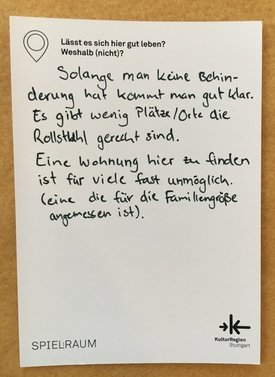 Lässt es sich hier gut leben?
Weshalb (nicht)?
Solange man keine Behin-
derung hat kommt man gut klar.
Es gibt wenig Plätze/Orte die
Rollstuhl gerecht sind.
Eine Wohnung hier zu finden
ist für viele fast unmöglich.
(eine die für die Familiengröße
angemessen ist).
SPIEL:RAUM
KulturRegion
Stuttgart